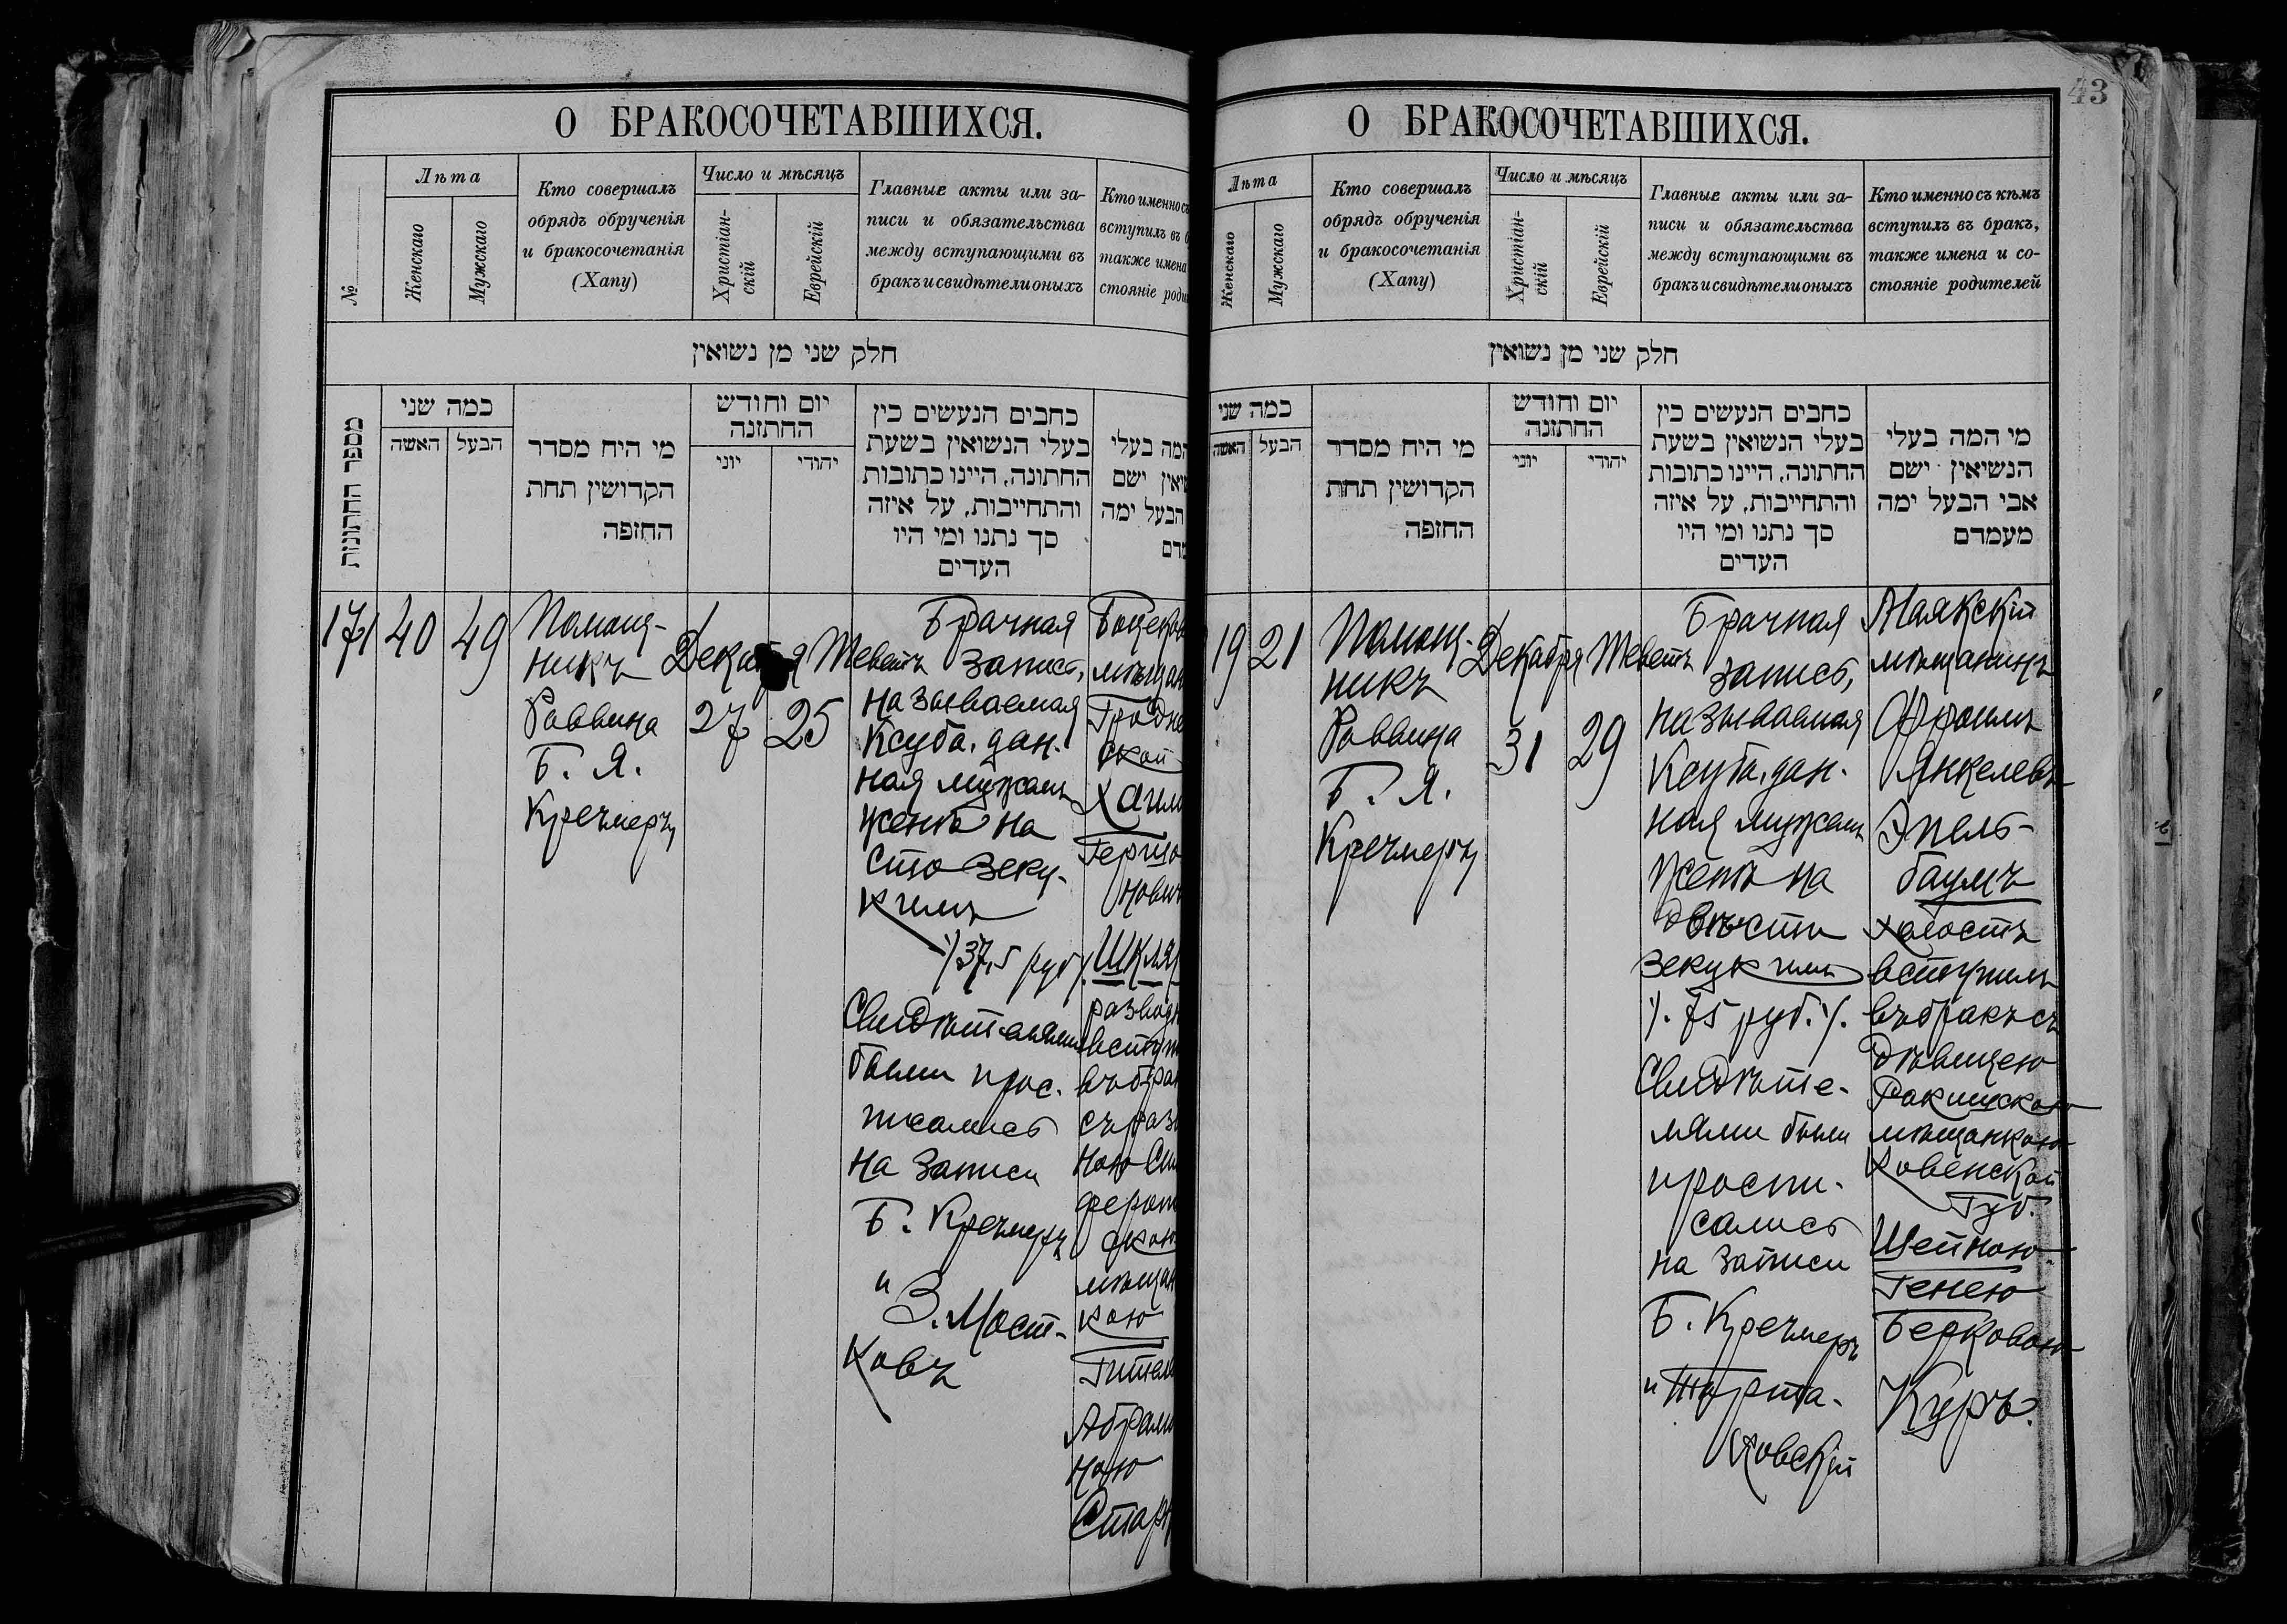 О БРАКОСОЧЕТАВШИХСЯ.
№
Лѣта
Женскаго
Мужскаго
Кто совершалъ
обрядъ обрученія
и бракосочетанія
(Хапу)
Число и мѣсяцъ
Христіан-
скій
Еврейскій
Главные акты или за-
писи и обязательства
между вступающими въ
бракъ и свидѣтели оныхъ
Кто именно съ
вступилъ въ б
также имена
стояніе роди
חלק שני מן נשואין
מספר החתונות
כמה שני
האשה
הבעל
מי היח מסדר
הקדושין תחת
החופה
יום וחודש
החתונה
יוני
יהודי
כתבים הנעשים כין
בעלי הנשואין בשעת
החתונה, היינו כתובות
והתחייבות, על איזה
סך נתנו ומי היו
העדים
המה בעלי
שואין ישם
הבעל ימה
מדם
171
40
49
Помощ-
никъ
Раввина
Б. Я.
Кречмеръ
Декабря
27
Теветъ
25
Брачная
запись,
называемая
Ксуба, дан-
ная мужемъ
женѣ на
сто зеку-
кимъ
⁒ 37,5 руб ⁒
Свидѣтелями
были прос-
писались
на записи
Б. Кречмеръ
и
З. Мост-
ковъ
мѣщан
Гродне
ской
Хаим
Гершо
нович
Шкля
развод
вступ
въ брак
съ разв
ною
мѣщан
кою
Абрам
ною
Стар
43
О БРАКОСОЧЕТАВШИХСЯ.
Лѣта
Женскаго
Мужскаго
Кто совершалъ
обрядъ обрученія
и бракосочетанія
(Хапу)
Число и мѣсяцъ
Христіан-
скій
Еврейскій
Главные акты или за-
писи и обязательства
между вступающими въ
бракъ и свидѣтели оныхъ
Кто именно съ кѣмъ
вступилъ въ бракъ,
также имена и со-
стояніе родителей
חלק שני מן נשואין
כמה שני
האשה
הבעל
מי היח מסדר
הקדושין תחת
החופה
יום וחודש
החתונה
יוני
יהודי
כתבים הנעשים כין
בעלי הנשואין בשעת
החתונה, היינו כתובות
והתחייבות, על איזה
סך נתנו ומי היו
העדים
מי המה בעלי
הנשיאין ישם
אבי הבעל ימה
מעמדם
19
21
Помощ-
никъ
Раввина
Б. Я.
Кречмеръ
Декабря
31
Теветъ
29
Брачная
запись,
называемая
Ксуба, дан-
ная мужемъ
женѣ на
двѣсти
зекукимъ
⁒ 75 руб. ⁒
Свидѣте-
лями были
роспи-
сались
на записи
Б. Кречмеръ
и
ковскій
Маякскій
мѣщанинъ
Фроимъ
Янкелевъ
Эпель-
баумъ
холостъ
вступилъ
въ бракъ съ
дѣвицею
Ракишскою
мѣщанкою
Ковенской
Губ.
Шейною
Генею
Берковою
Куръ.